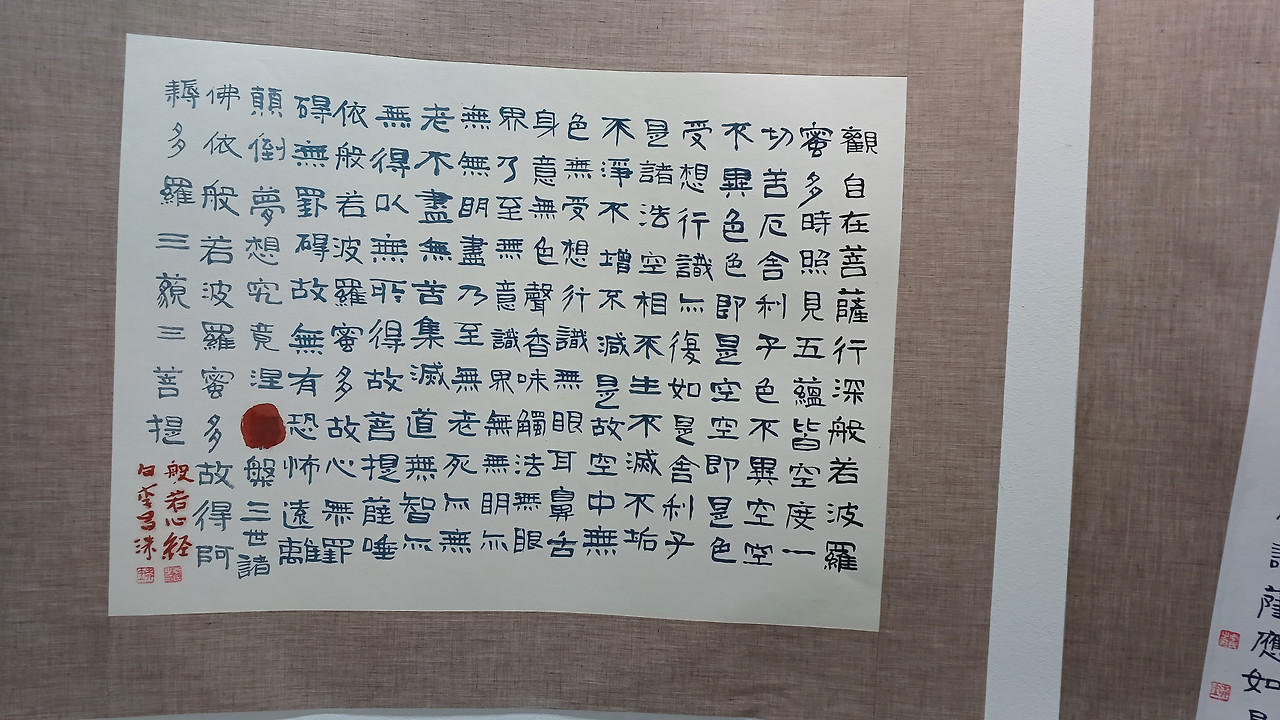 觀自在菩薩行深般若波羅
蜜多時照見五蘊皆空度一
切苦厄舍利子色不異空空
不異色色即是空空即是色
受想行識亦復如是舍利子
是諸法空相不生不滅不垢
不淨不增不減是故空中無
色無受想行識無眼耳鼻舌
身意無色聲香味觸法無眼
界乃至無意識界無無明亦
無無明盡乃至無老死亦無
老不盡無苦集滅道無智亦
無得以無所得故菩提薩唾
依般若波羅蜜多故心無罣
碍無罣碍故無有恐怖遠離
顛倒夢想究竟涅槃三世諸
佛依般若波羅蜜多故得阿
耨多羅三藐三菩提
般若心経
薩應如